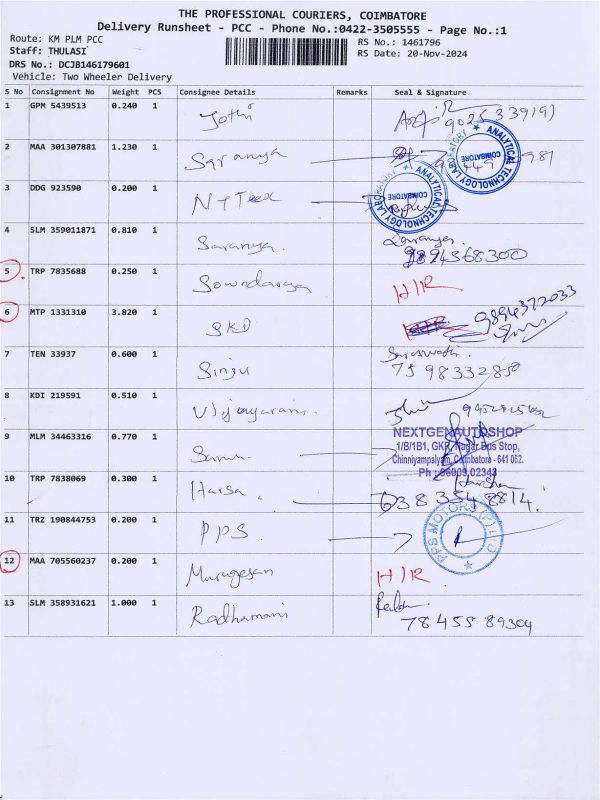 THE PROFESSIONAL COURIERS, COIMBATORE
Delivery Runsheet - PCC - Phone No.:0422-3505555 - Page No.:1
Route: KM PLM PCC
RS No.: 1461796
Staff: THULASI
RS Date: 20-Nov-2024
DRS No.: DCJB146179601
Vehicle: Two Wheeler Delivery
S No Consignment No Weight PCS Consignee Details Remarks Seal & Signature
1 GPM 5439513 0.240 1 Jothi
2 MAA 301307881 1.230 1 Saranya
ANALYTICAL TECHNOLOGY LABORATORY COIMBATORE
3 DDG 923590 0.200 1
ANALYTICAL TECHNOLOGY LABORATORY COIMBATORE
4 SLM 359011871 0.810 1 Saranya. Saranya
9894568300
5 TRP 7835688 0.250 1 Sowndarya H/R
6 MTP 1331310 3.820 1 SKD 9894372033
7 TEN 33937 0.600 1 Sinju Saraswathi.
75 98332850
8 KDI 219591 0.510 1 Vijayaram.
9 MLM 34463316 0.770 1
NEXTGENAUTOSHOP
1/B/1B1, GKR Nagar Bus Stop,
Chinniyampalyam, Coimbatore - 641 062.
Ph : 96009 02343
10 TRP 7838069 0.300 1 Harsa. Harsha
638354 8814.
11 TRZ 190844753 0.200 1 PPS
PPS MOTORS (P) LTD
12 MAA 705560237 0.200 1 Murugesan H/R
13 SLM 358931621 1.000 1 Radhamani
78455 89304